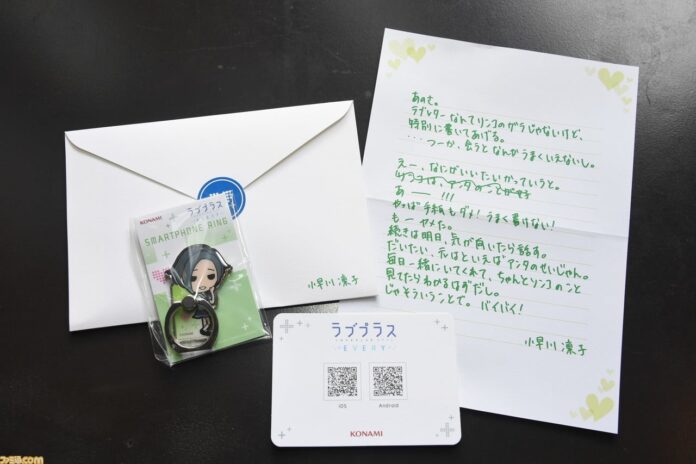 あのさ。
ラブレターなんてリンコのガラじゃないけど、
特別に書いてあげる。
・・・つーか、会うとなんかうまくいえないし。
えー、なにがいいたいかっていうと。
リンコは、アンタのことが
あ――!!!
やっぱ手紙もダメ!うまく書けない!
もーヤメた。
続きは明日、気が向いたら話す。
だいたい、元はといえばアンタのせいじゃん。
毎日一緒にいてくれて、ちゃんとリンコのこと
見てたらわかるはずだし。
じゃそういうことで。バイバイ!
小早川 凛子
小早川 凛子
KONAMI
ラブプラス
EVERY
SMARTPHONE RING
ラブプラス
EVERY
iOS
Android
KONAMI
ファミ通.com